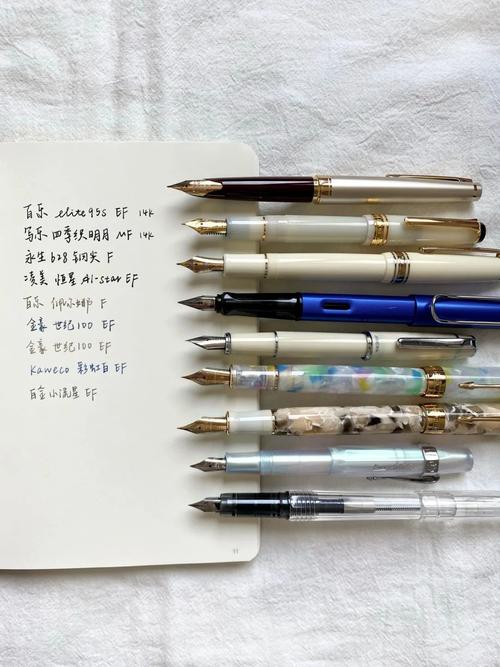 百乐 elite95s EF 14k
写乐 四季织明月 MF 14k
永生 628 钢尖 F
凌美 恒星 Al-star EF
百乐 佩尔娜 F
金豪 世纪100 EF
金豪 世纪100 EF
Kaweco 彩虹白 EF
白金小流星 EF